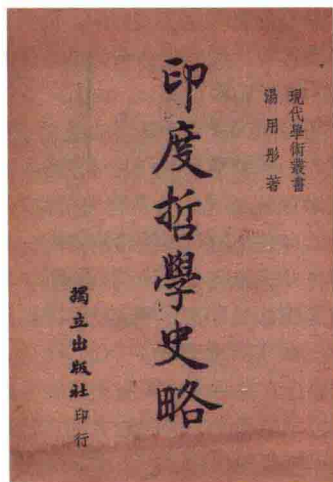 現代學術叢書
湯用彤著
印度哲學史略
獨立出版社印行